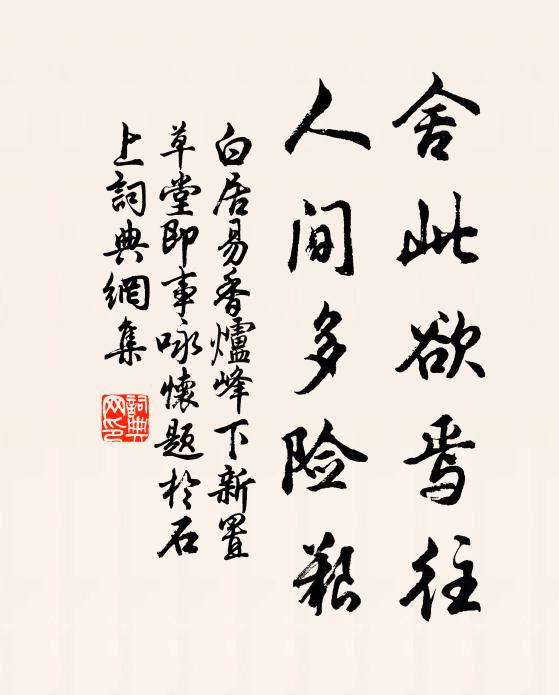 舍此欲焉往
人间多险艰
白居易香爐峰下新置
草堂即事咏懷题於石
上詞典網集
詞典
网印